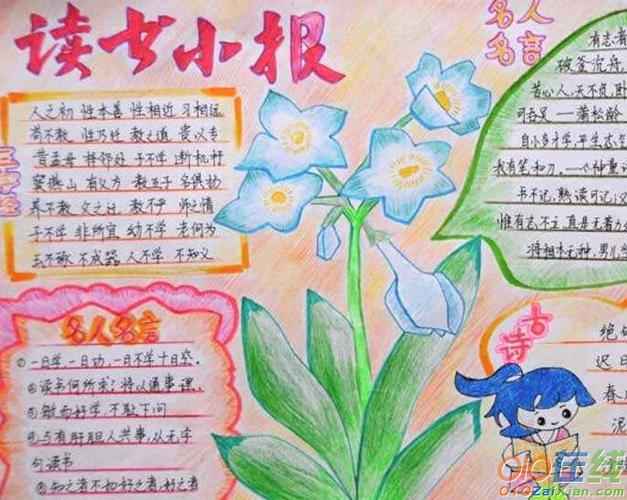 读书小报
三字经
人之初 性本善 性相近 习相远
苟不教 性乃迁 教之道 贵以专
昔孟母 择邻处 子不学 断机杼
窦燕山 有义方 教五子 名俱扬
养不教 父之过 教不严 师之惰
子不学 非所宜 幼不学 老何为
玉不琢 不成器 人不学 不知义
名人名言
①一日学,一日功,一日不学十日空。
②读书何所求?将以通事理。
③敏而好学,不耻下问
④与有肝胆人共事,从无字
句读书
⑤知之者不如好之者,好之者
名人
名言
有志者
破釜沉舟,
苦心人,天不负,卧
可吞吴 —蒲松龄
自小多才学,平生志气
我有笔如刀,一
书不记,熟读可记;义
惟有志不立,直是无着力
将相本无种,男儿
古诗
绝句
迟日
春
泥
OiO在线
OioZaiXian.com